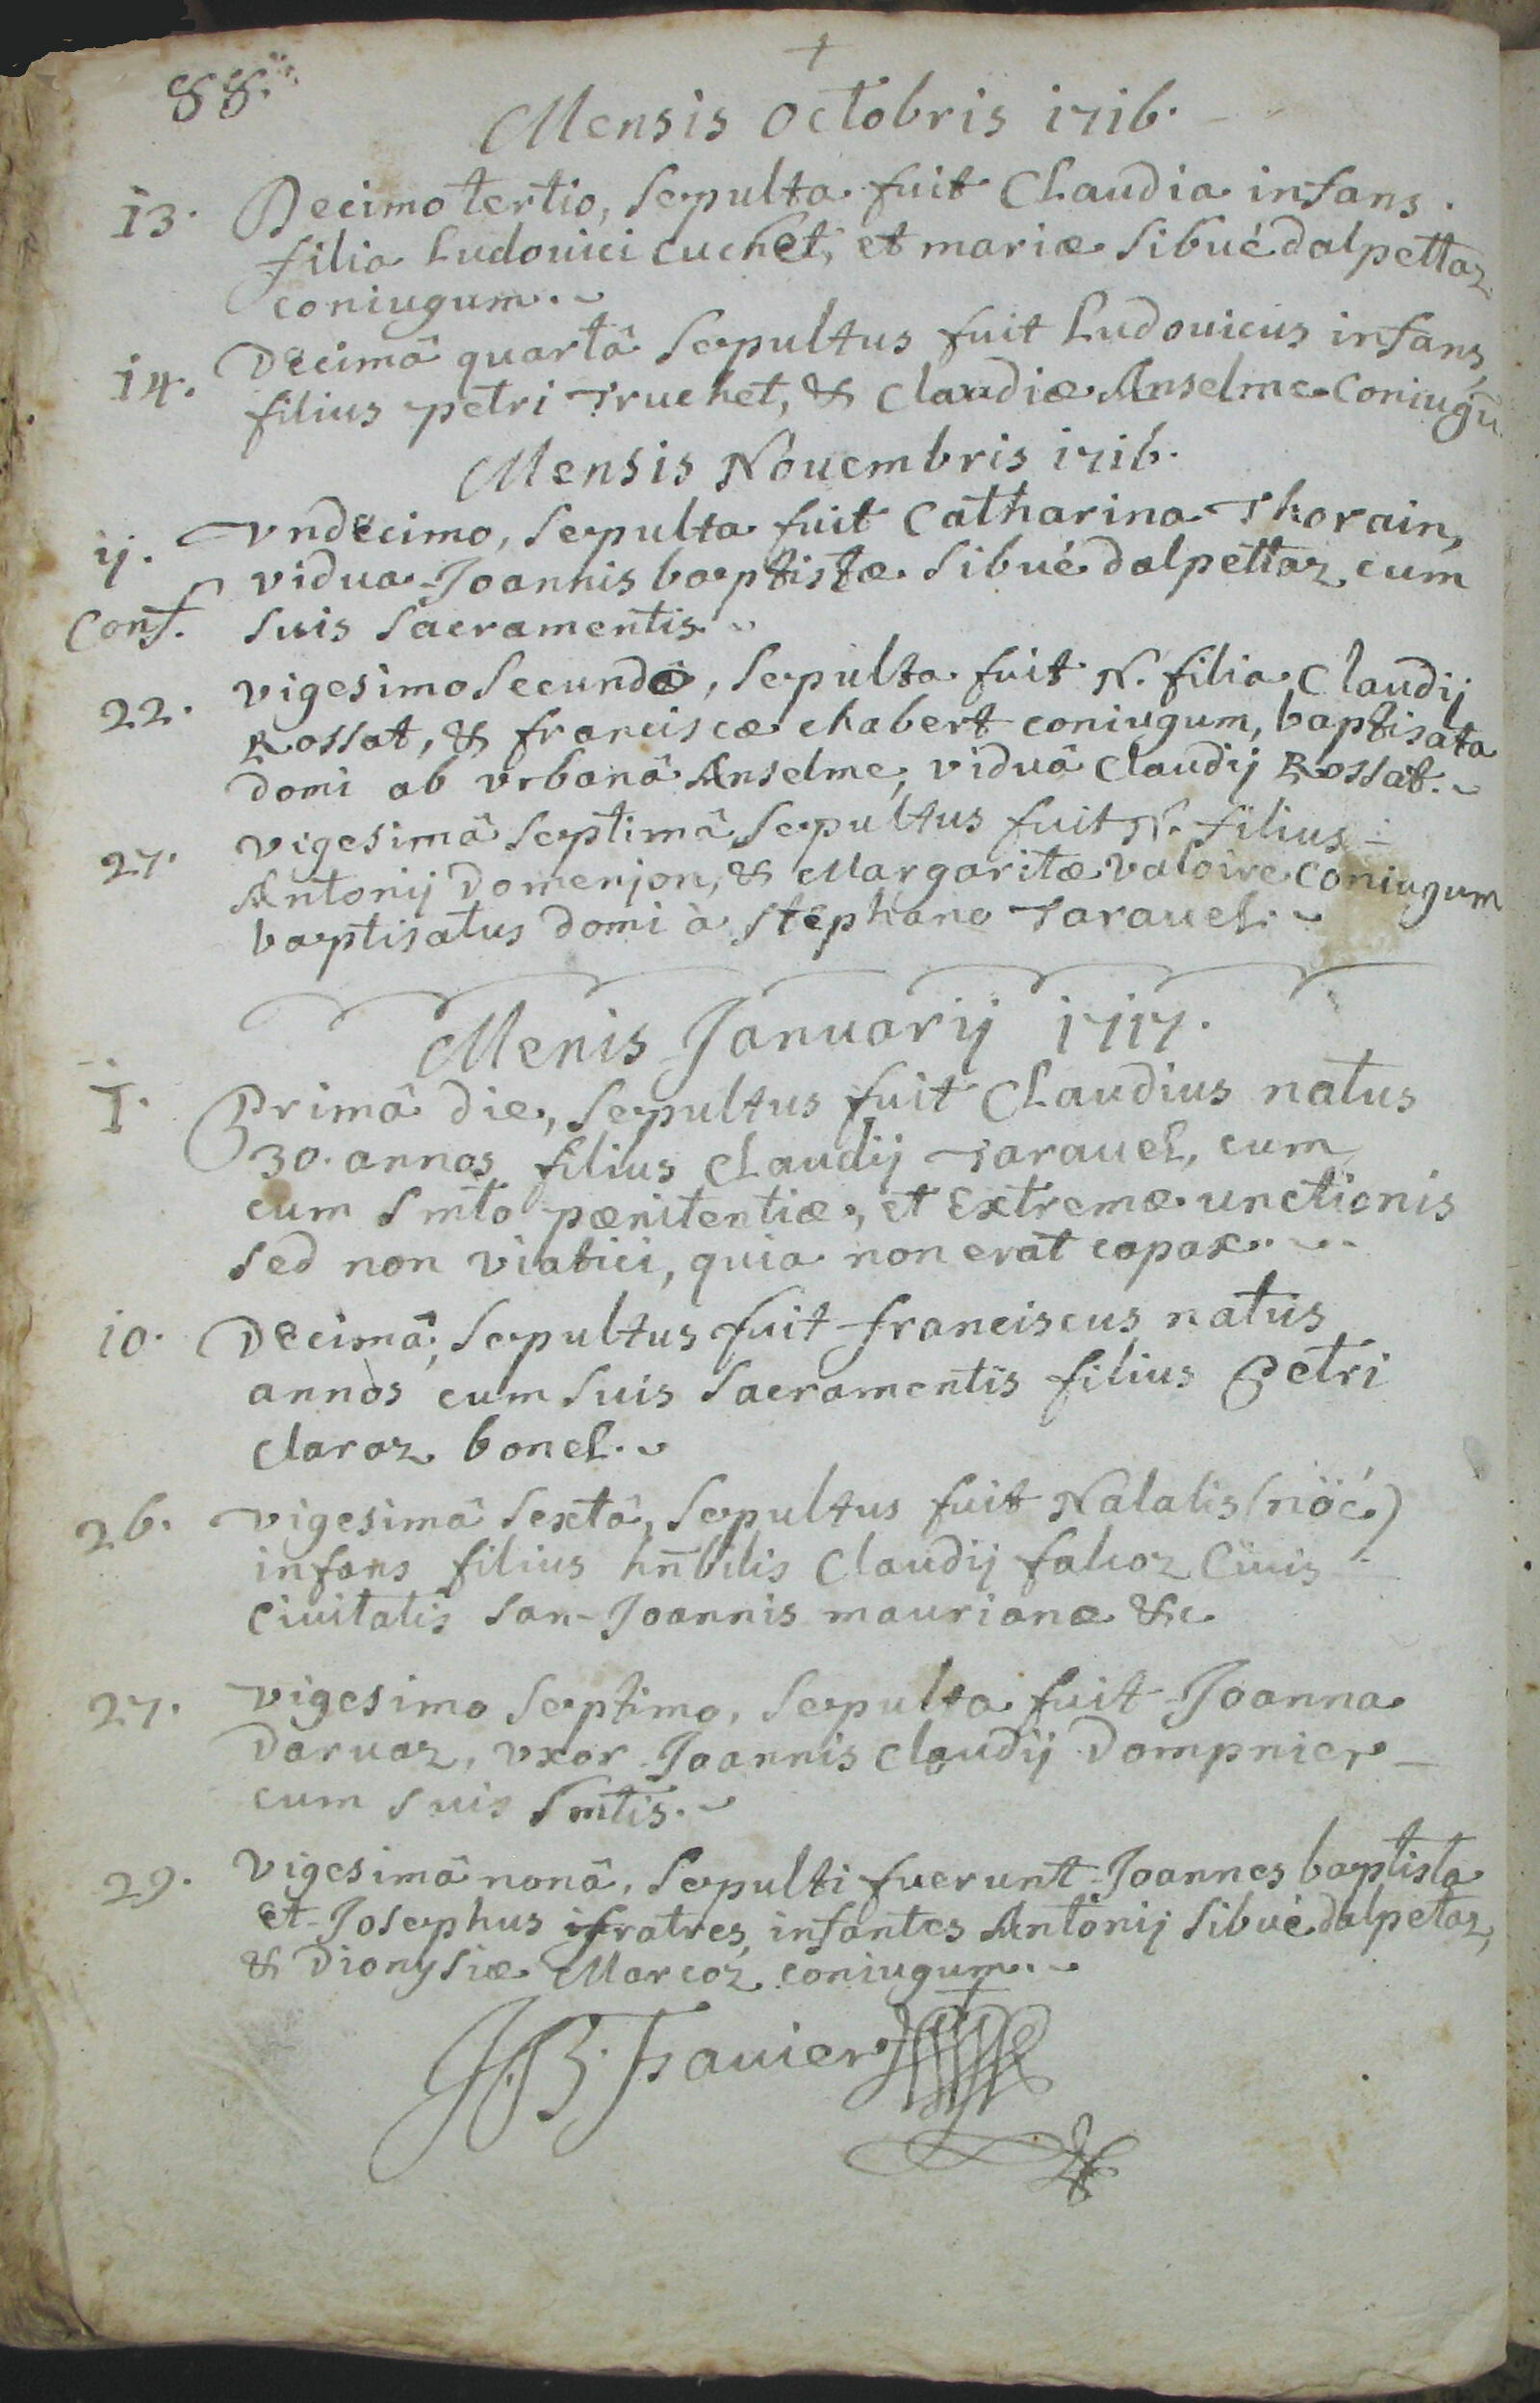 88.
+
Mensis Octobris 1716.
13. Decimo tertio, sepulta fuit Claudia infans.
filia Ludouici cuchet, et mariæ Sibué dalpettaz
coniugum.
14. Decimâ quartâ sepultus fuit Ludouicus infans,
filius petri Truchet, & Claudiæ Anselme Coniugũ
Mensis Nouembris 1716.
ij. Vndecimo, sepulta fuit Catharina Thorain,
vidua Joannis baptistæ Sibué dalpettaz, cum
Conf. suis sacramentis.
22. vigesimo secundo, sepulta fuit N. filia Claudij
Rossat, & franciscæ chabert coniugum, baptisata
domi ab vrbanâ Anselme, viduâ Claudij Rossat.
27. vigesimâ septimâ sepultus fuit N. filius
Antonij Domenjon, & Margaritæ valoire coniugum
baptisatus domi à stephano Tarauel.
Menis Januarij 1717.
1. Primâ die, sepultus fuit Claudius natus
30. annos filius Claudij Tarauel, cum
cum Smto pænitentiæ, et Extremæ unctionis
sed non viatici, quia non erat capax.
10. Decimâ, sepultus fuit franciscus natus
annos cum suis sacramentis filius Petri
claraz bonel.
26. vigesimâ sextâ, sepultus fuit Natalis (nöé)
infans filius hñbilis Claudij falcoz Ciuis
Ciuitatis San-Joannis maurianæ &c
27. vigesimo septimo, sepulta fuit Joanna
Daruaz, vxor Joannis claudij Dompnier
cum suis Smtis.
29. Vigesimâ nonâ, sepulti fuerunt Joannes baptista
et Josephus fratres, infantes Antonij Sibué dalpetaz,
& Dionysiæ Marcoz coniugum.